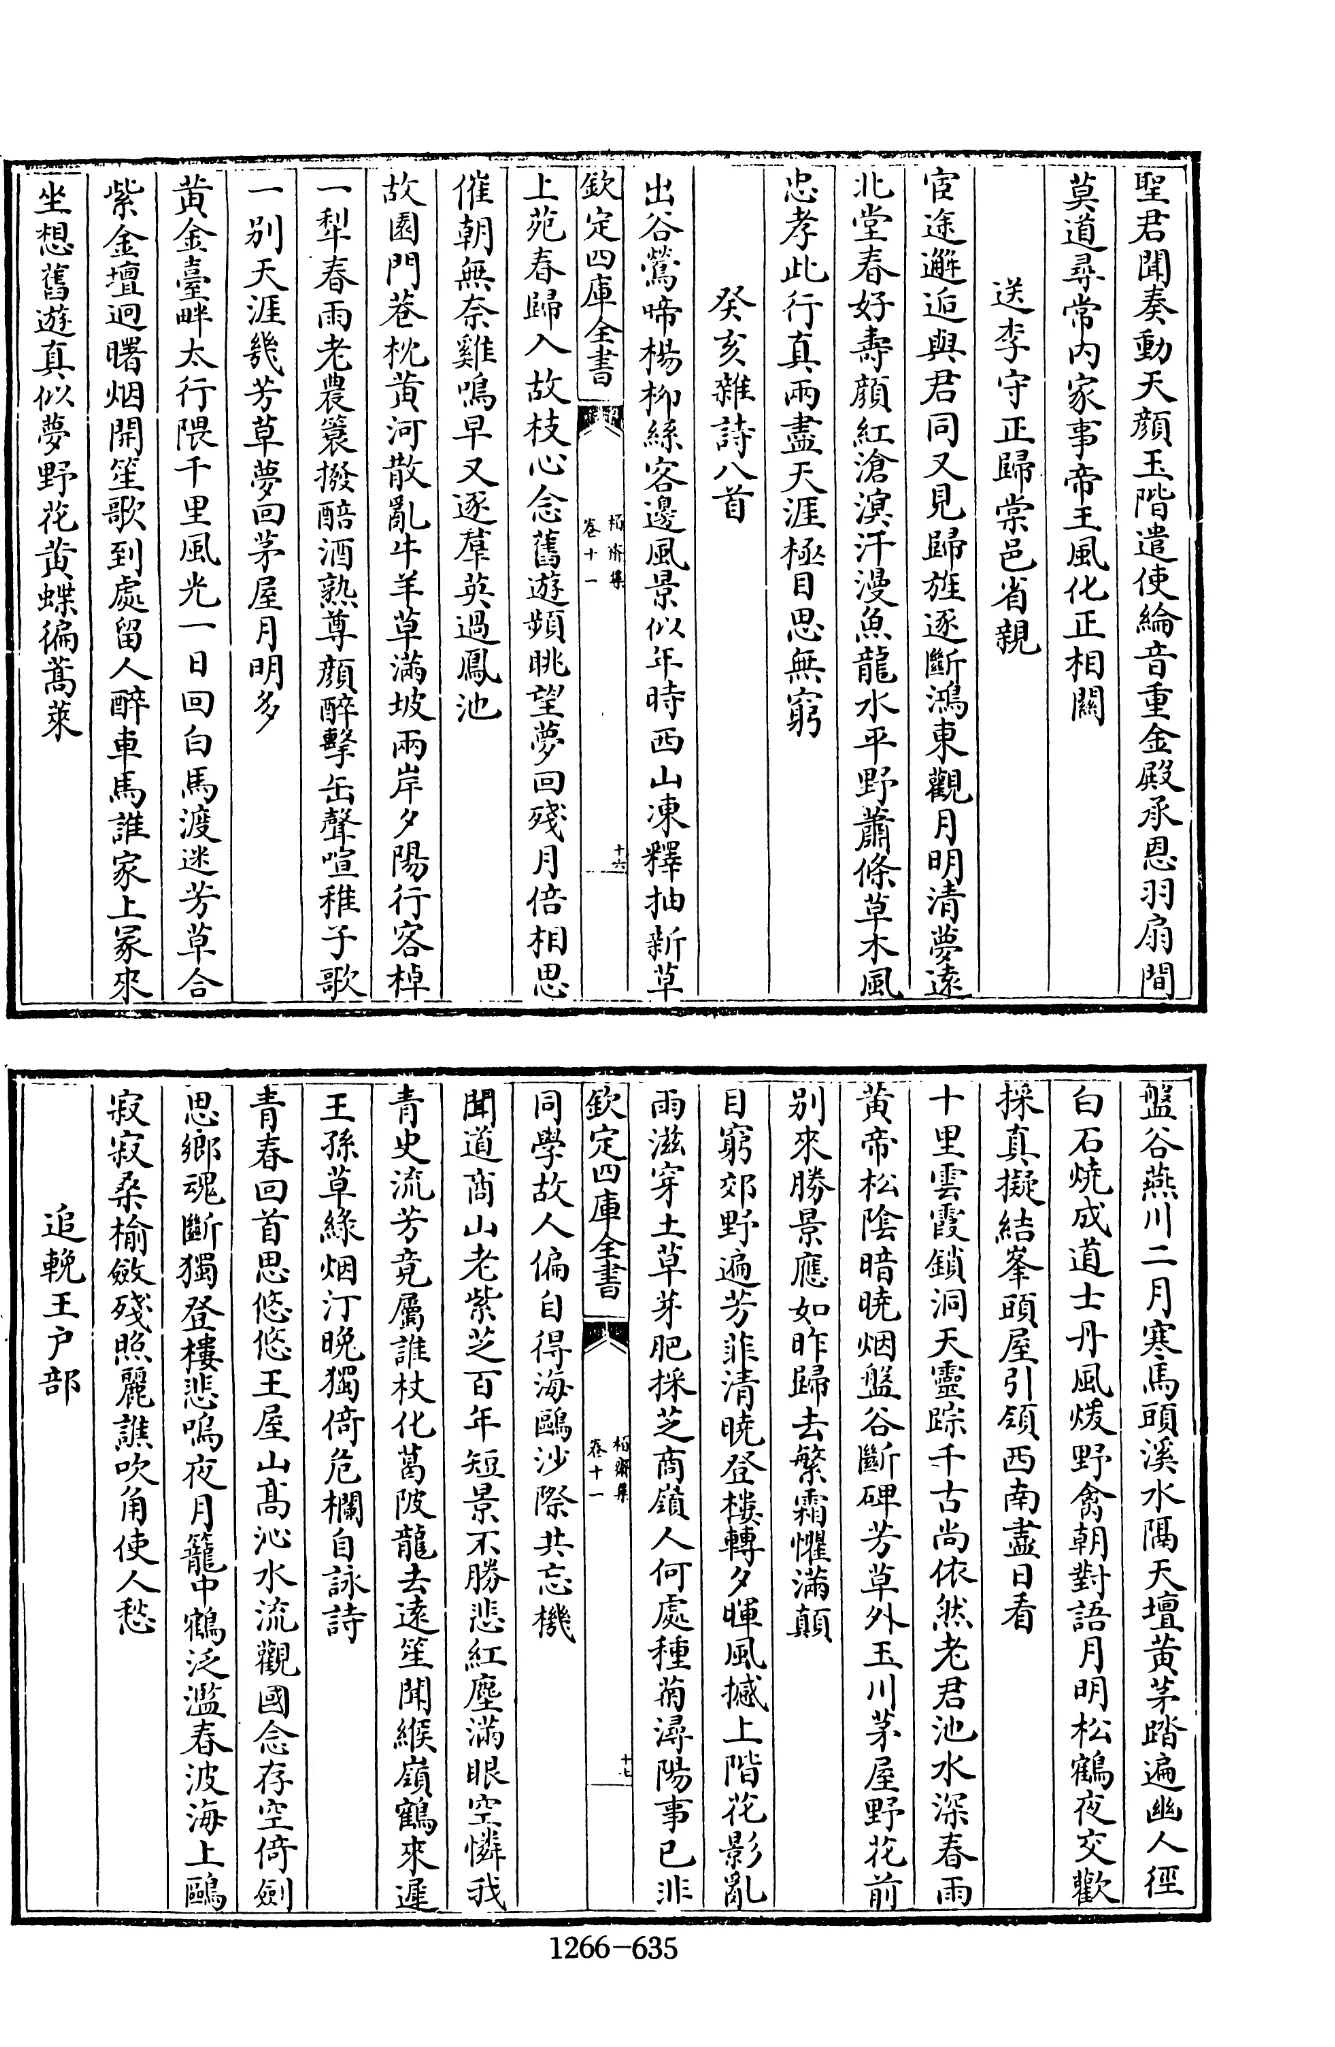 聖君聞奏動天顔玉階遣使綸音重金殿承恩羽扇間
莫道尋常内家事帝王風化正相關
送李守正歸棠邑省親
宦途邂逅與君同又見歸旌逐斷鴻東觀月明清夢遠
北堂春好壽顔紅滄溟汗漫魚龍水平野蕭條草木風
忠孝此行真兩盡天涯極目思無窮
癸亥雜詩八首
出谷鶯啼楊柳絲客邊風景似年時西山凍釋抽新草
欽定四庫全書
栢齋集
卷十一
十六
上苑春歸入故枝心念舊遊頻眺望夢回殘月倍相思
催朝無奈雞鳴早又逐羣英過鳳池
故園門巷枕黄河散亂牛羊草滿坡兩岸夕陽行客棹
一犁春雨老農簑撥醅酒熟尊顔醉擊缶聲喧稚子歌
一別天涯幾芳草夢回茅屋月明多
黄金臺畔太行隈千里風光一日回白馬渡迷芳草合
紫金壇迥曙烟開笙歌到處留人醉車馬誰家上冢來
坐想舊遊真似夢野花黄蝶徧蒿萊
盤谷燕川二月寒馬頭溪水隔天壇黄茅踏遍幽人徑
白石燒成道士丹風煖野禽朝對語月明松鶴夜交歡
採真擬結峯頭屋引領西南盡日看
十里雲霞鎖洞天靈踪千古尚依然老君池水深春雨
黄帝松陰暗曉烟盤谷斷碑芳草外玉川茅屋野花前
別來勝景應如昨歸去繁霜懼滿顛
目窮郊野遍芳菲清曉登樓轉夕暉風撼上階花影亂
雨滋穿土草芽肥採芝商嶺人何處種菊潯陽事已非
欽定四庫全書
栢齋集
卷十一
十七
同學故人偏自得海鷗沙際共忘機
聞道商山老紫芝百年短景不勝悲紅塵滿眼空憐我
青史流芳竟屬誰杖化葛陂龍去遠笙聞緱嶺鶴來遲
王孫草緑烟汀晚獨倚危欄自詠詩
青春回首思悠悠王屋山髙沁水流觀國念存空倚劍
思鄉魂斷獨登樓悲鳴夜月籠中鶴泛濫春波海上鷗
寂寂桑榆斂殘照麗譙吹角使人愁
追輓王户部
1266-635